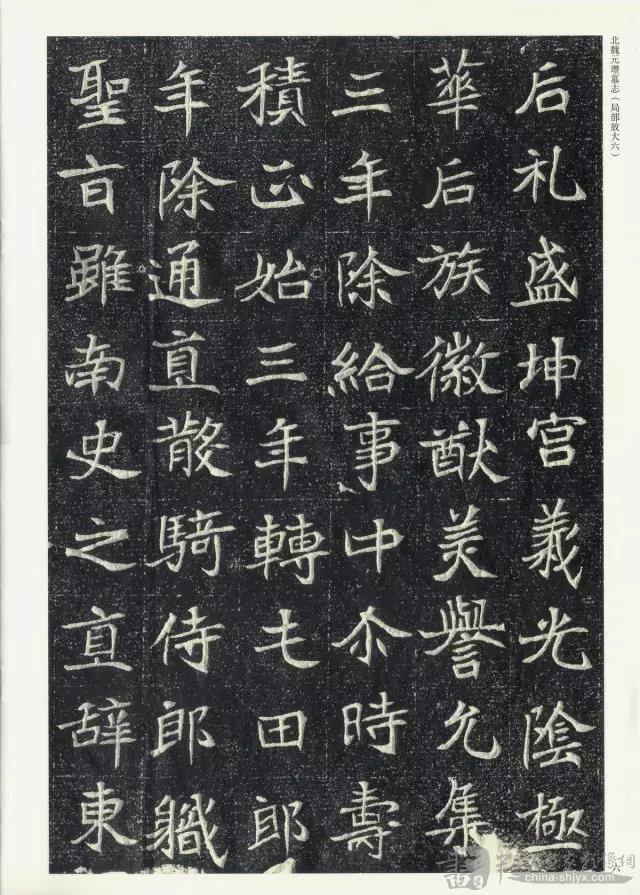 北魏元瓒墓志（局部放大六）
后礼盛坤宫義光陰極
華后族徽猷美譽允集
三年除給事中尒時壽
積正始三年轉屯田郎
年除通直散騎侍郎職
聖言雖南史之直辞東
www.china-shjyx.com